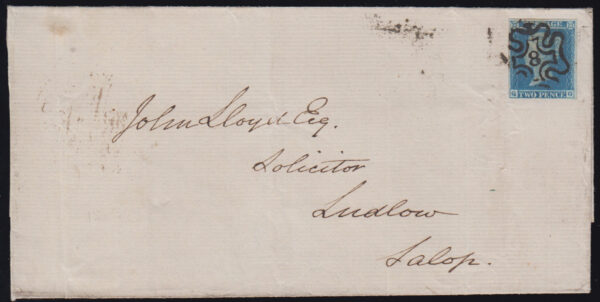 POSTAGE
8
TWO PENCE
John Lloyd Esq.
Solicitor
Ludlow
Salop.